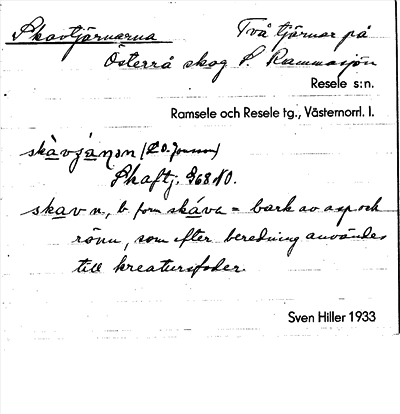 Skavtjärnarna
Två tjärnar på
Österrå skog S. Rammasjön
Resele s:n.
Ramsele och Resele tg., Västernorrl. l.
skàvjànən (E. O. Jonsson)
Skaftj. 268 NO.
skav n, b. form skáva = bark av asp och
rönn, som efter beredning användes
till kreatursfoder.
Sven Hiller 1933